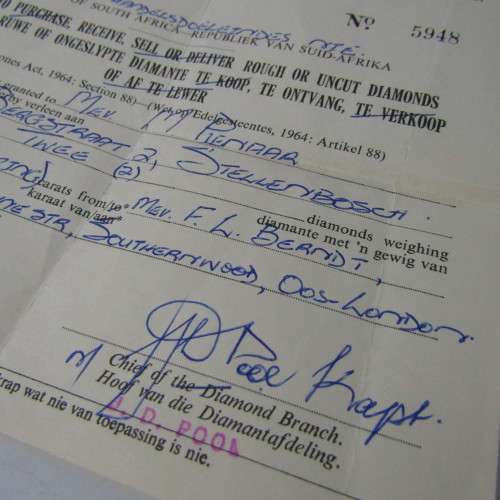 HANDELSDOELEINDES NIE.
OF SOUTH AFRICA—REPUBLIEK VAN SUID-AFRIKA
Nº 5948
O PURCHASE, RECEIVE, SELL OR DELIVER ROUGH OR UNCUT DIAMONDS
RUWE OF ONGESLYPTE DIAMANTE TE KOOP, TE ONTVANG, TE VERKOOP
OF AF TE LEWER
ones Act, 1964: Section 88)—(Wet op Edelgesteentes, 1964: Artikel 88)
granted to
by verleen aan MEV. M PIENAAR
BERGSTRAAT 2, STELLENBOSCH.
TWEE (2) diamonds weighing
diamante met 'n gewig van
carats from/to
karaat van/aan MEV. F. L. BERNDT,
STR, SOUTHERNWOOD, OOS-LONDON.
Kapt.
Chief of the Diamond Branch.
Hoof van die Diamantafdeling.
D. POOL
rap wat nie van toepassing is nie.